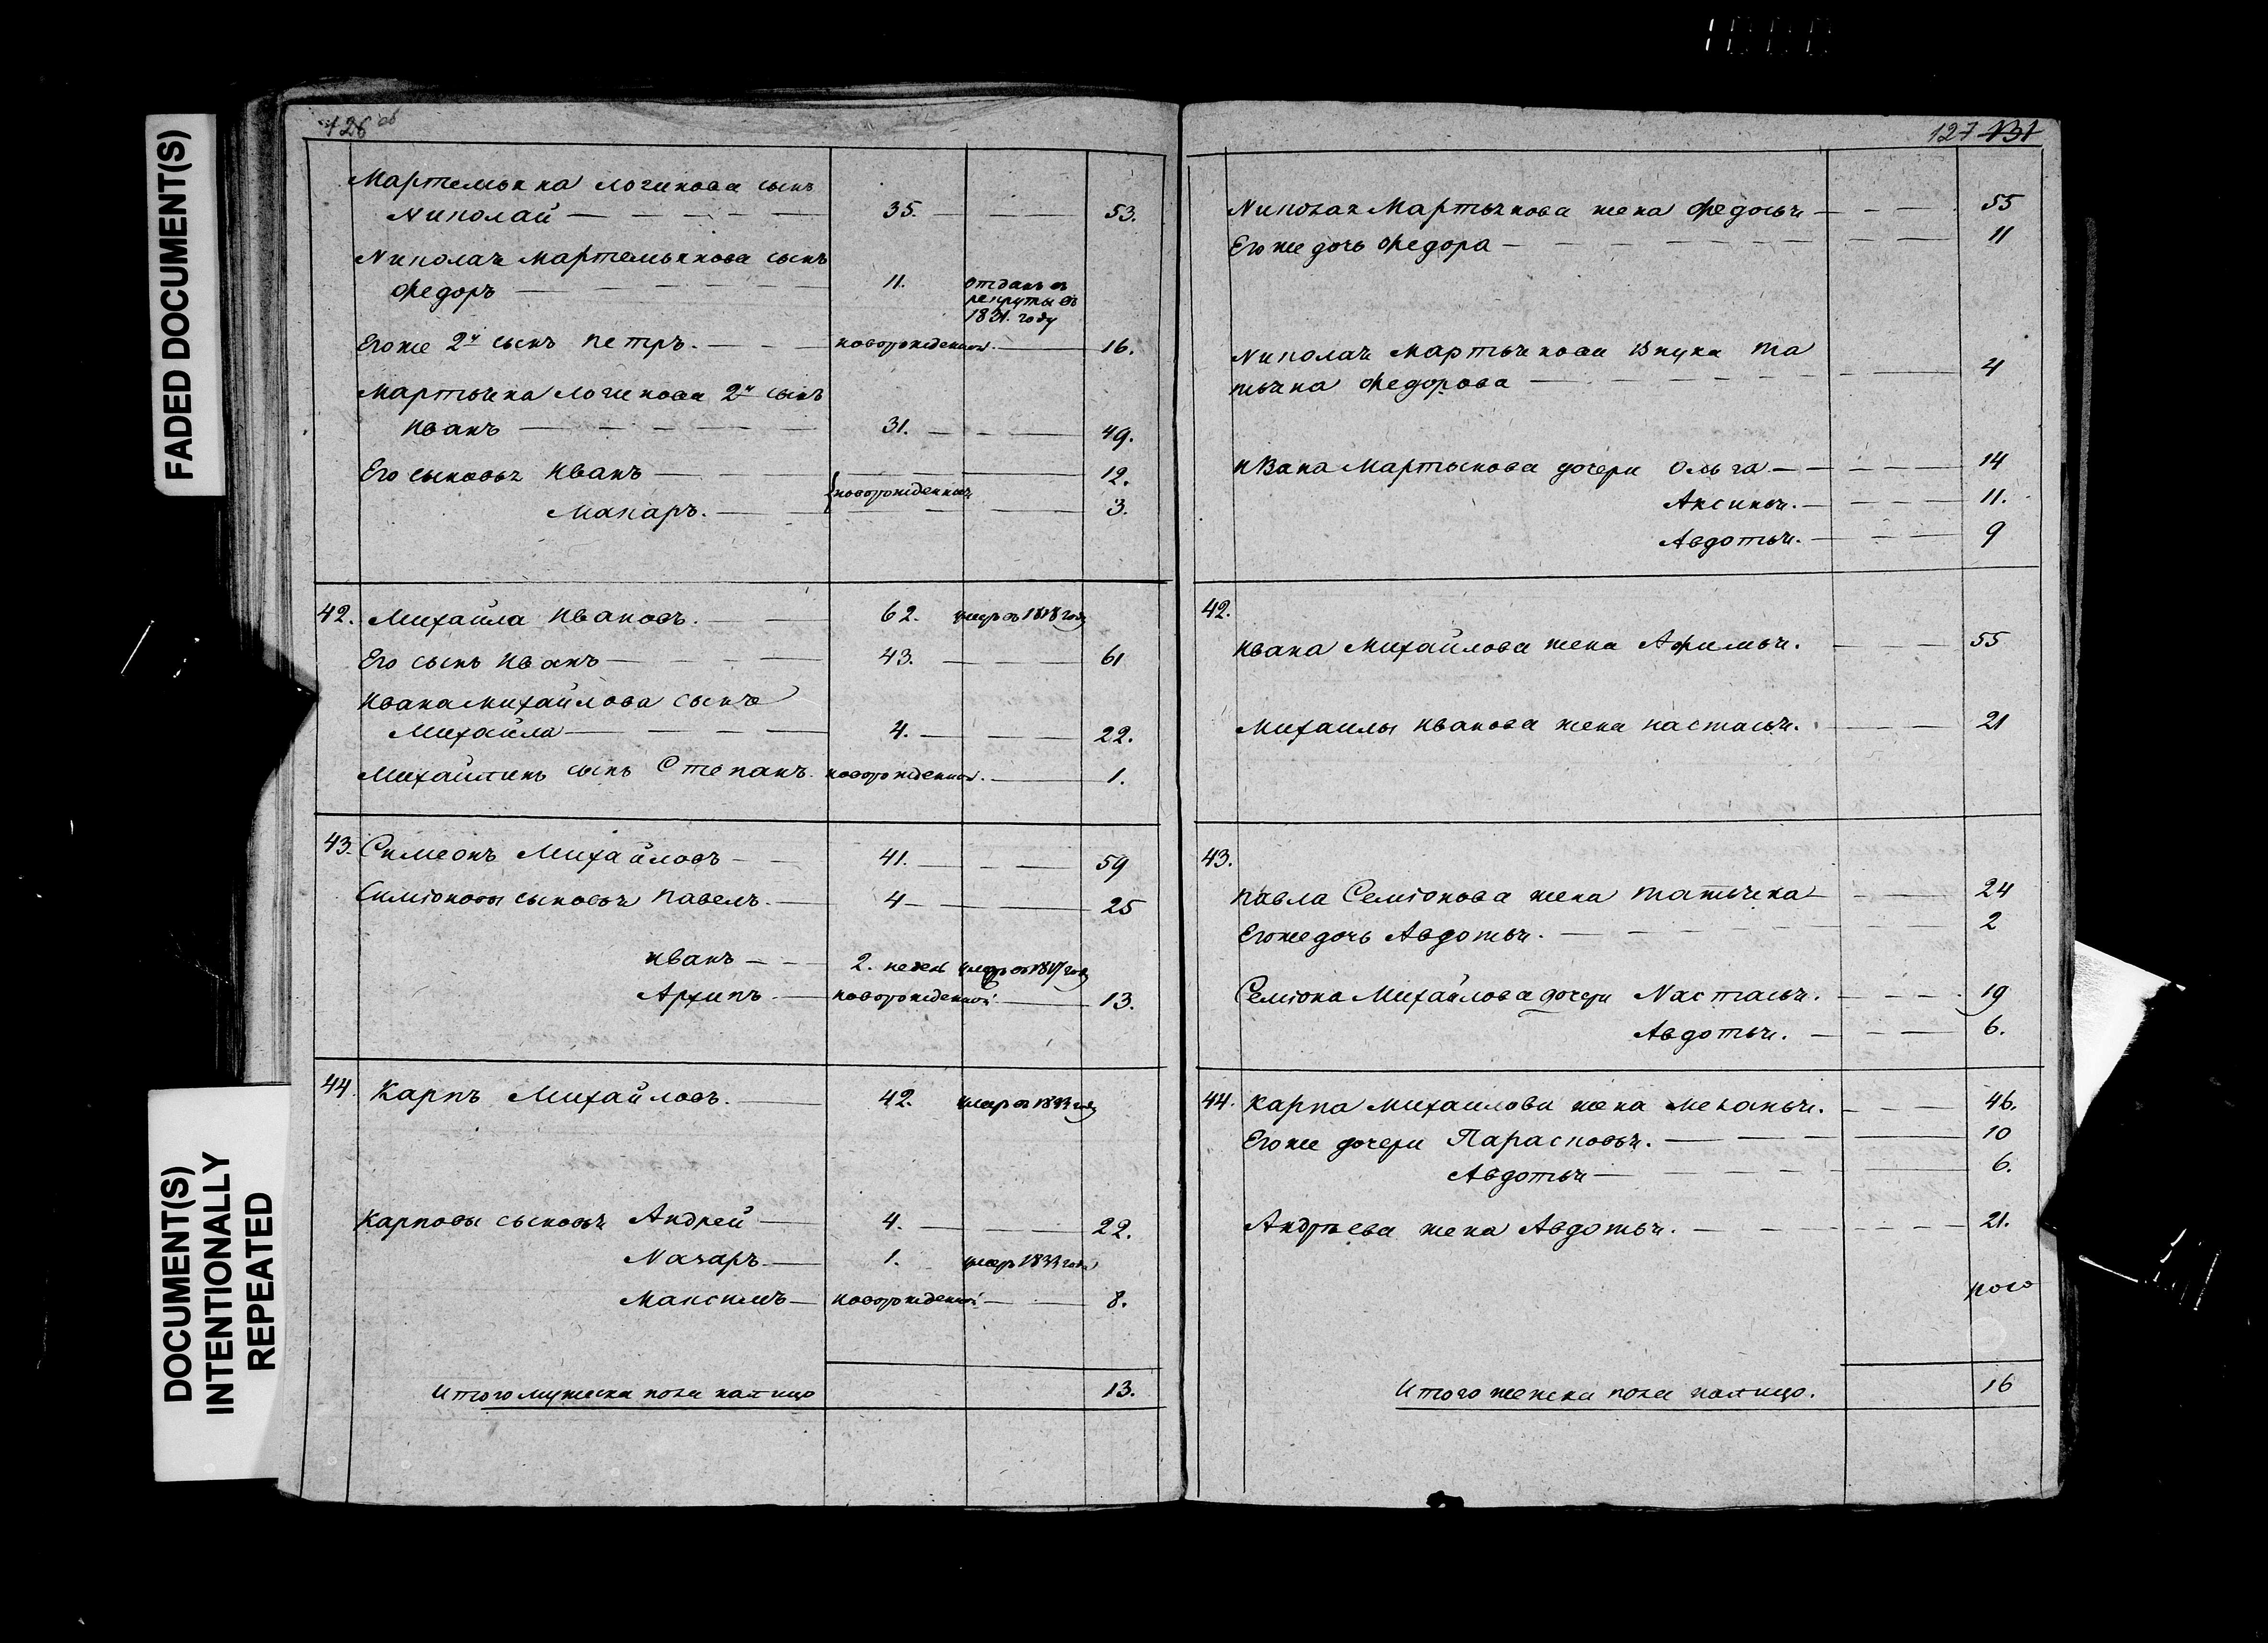 1000
FADED DOCUMENT(S)
DOCUMENT(S)
INTENTIONALLY
REPEATED
126 об
Мартемьяна Логинова сынъ
Николай 35. 53.
Николая Мартемьянова сынъ
Федоръ 11. отданъ въ
рекруты въ
1831. году
Его же 2й сынъ Петръ. новорожденной. 16.
Мартьяна Логинова 2й сынъ
Иванъ 31. 49.
Его сыновья Иванъ 12.
новорожденныя
Макаръ. 3.
42. Михайла Ивановъ. 62. умеръ въ 1818 году
Его сынъ Иванъ 43. 61
Ивана Михайлова сынъ
Михайла 4. 22.
Михайлинъ сынъ Степанъ. новорожденной. 1.
43. Симеонъ Михайловъ 41. 59
Симіоновы сыновья Павелъ. 4 25
Иванъ 2. недель умеръ въ 1817 году
Архипъ. новорожденной 13.
44. Карпъ Михайловъ. 42. умеръ въ 1833 году
Карповы сыновья Андрей 4. 22.
Назаръ. 1. умеръ 1833 года
Максимъ новорожденной 8.
Итого мужеска пола налицо 13.
127 131
Николая Мартьянова жена Федосья 55
Его же дочь Федора 11
Николая Мартьянова внука Та
тьяна Федорова 4
Ивана Мартынова дочери Ольга 14
Аксинья. 11.
Авдотья. 9
42.
Ивана Михайлова жена Афимья. 55
Михаилы Иванова жена Настасья. 21
43.
Павла Семіонова жена Татьяна 24
Его же дочь Авдотья. 2
Семіона Михайлова дочери Настасья. 19
Авдотья. 6.
44. Карпа Михаилова жена Меланья. 46.
Его же дочери Парасковья. 10
Авдотья 6.
Андрѣева жена Авдотья. 21.
Итого женска пола налицо. 16